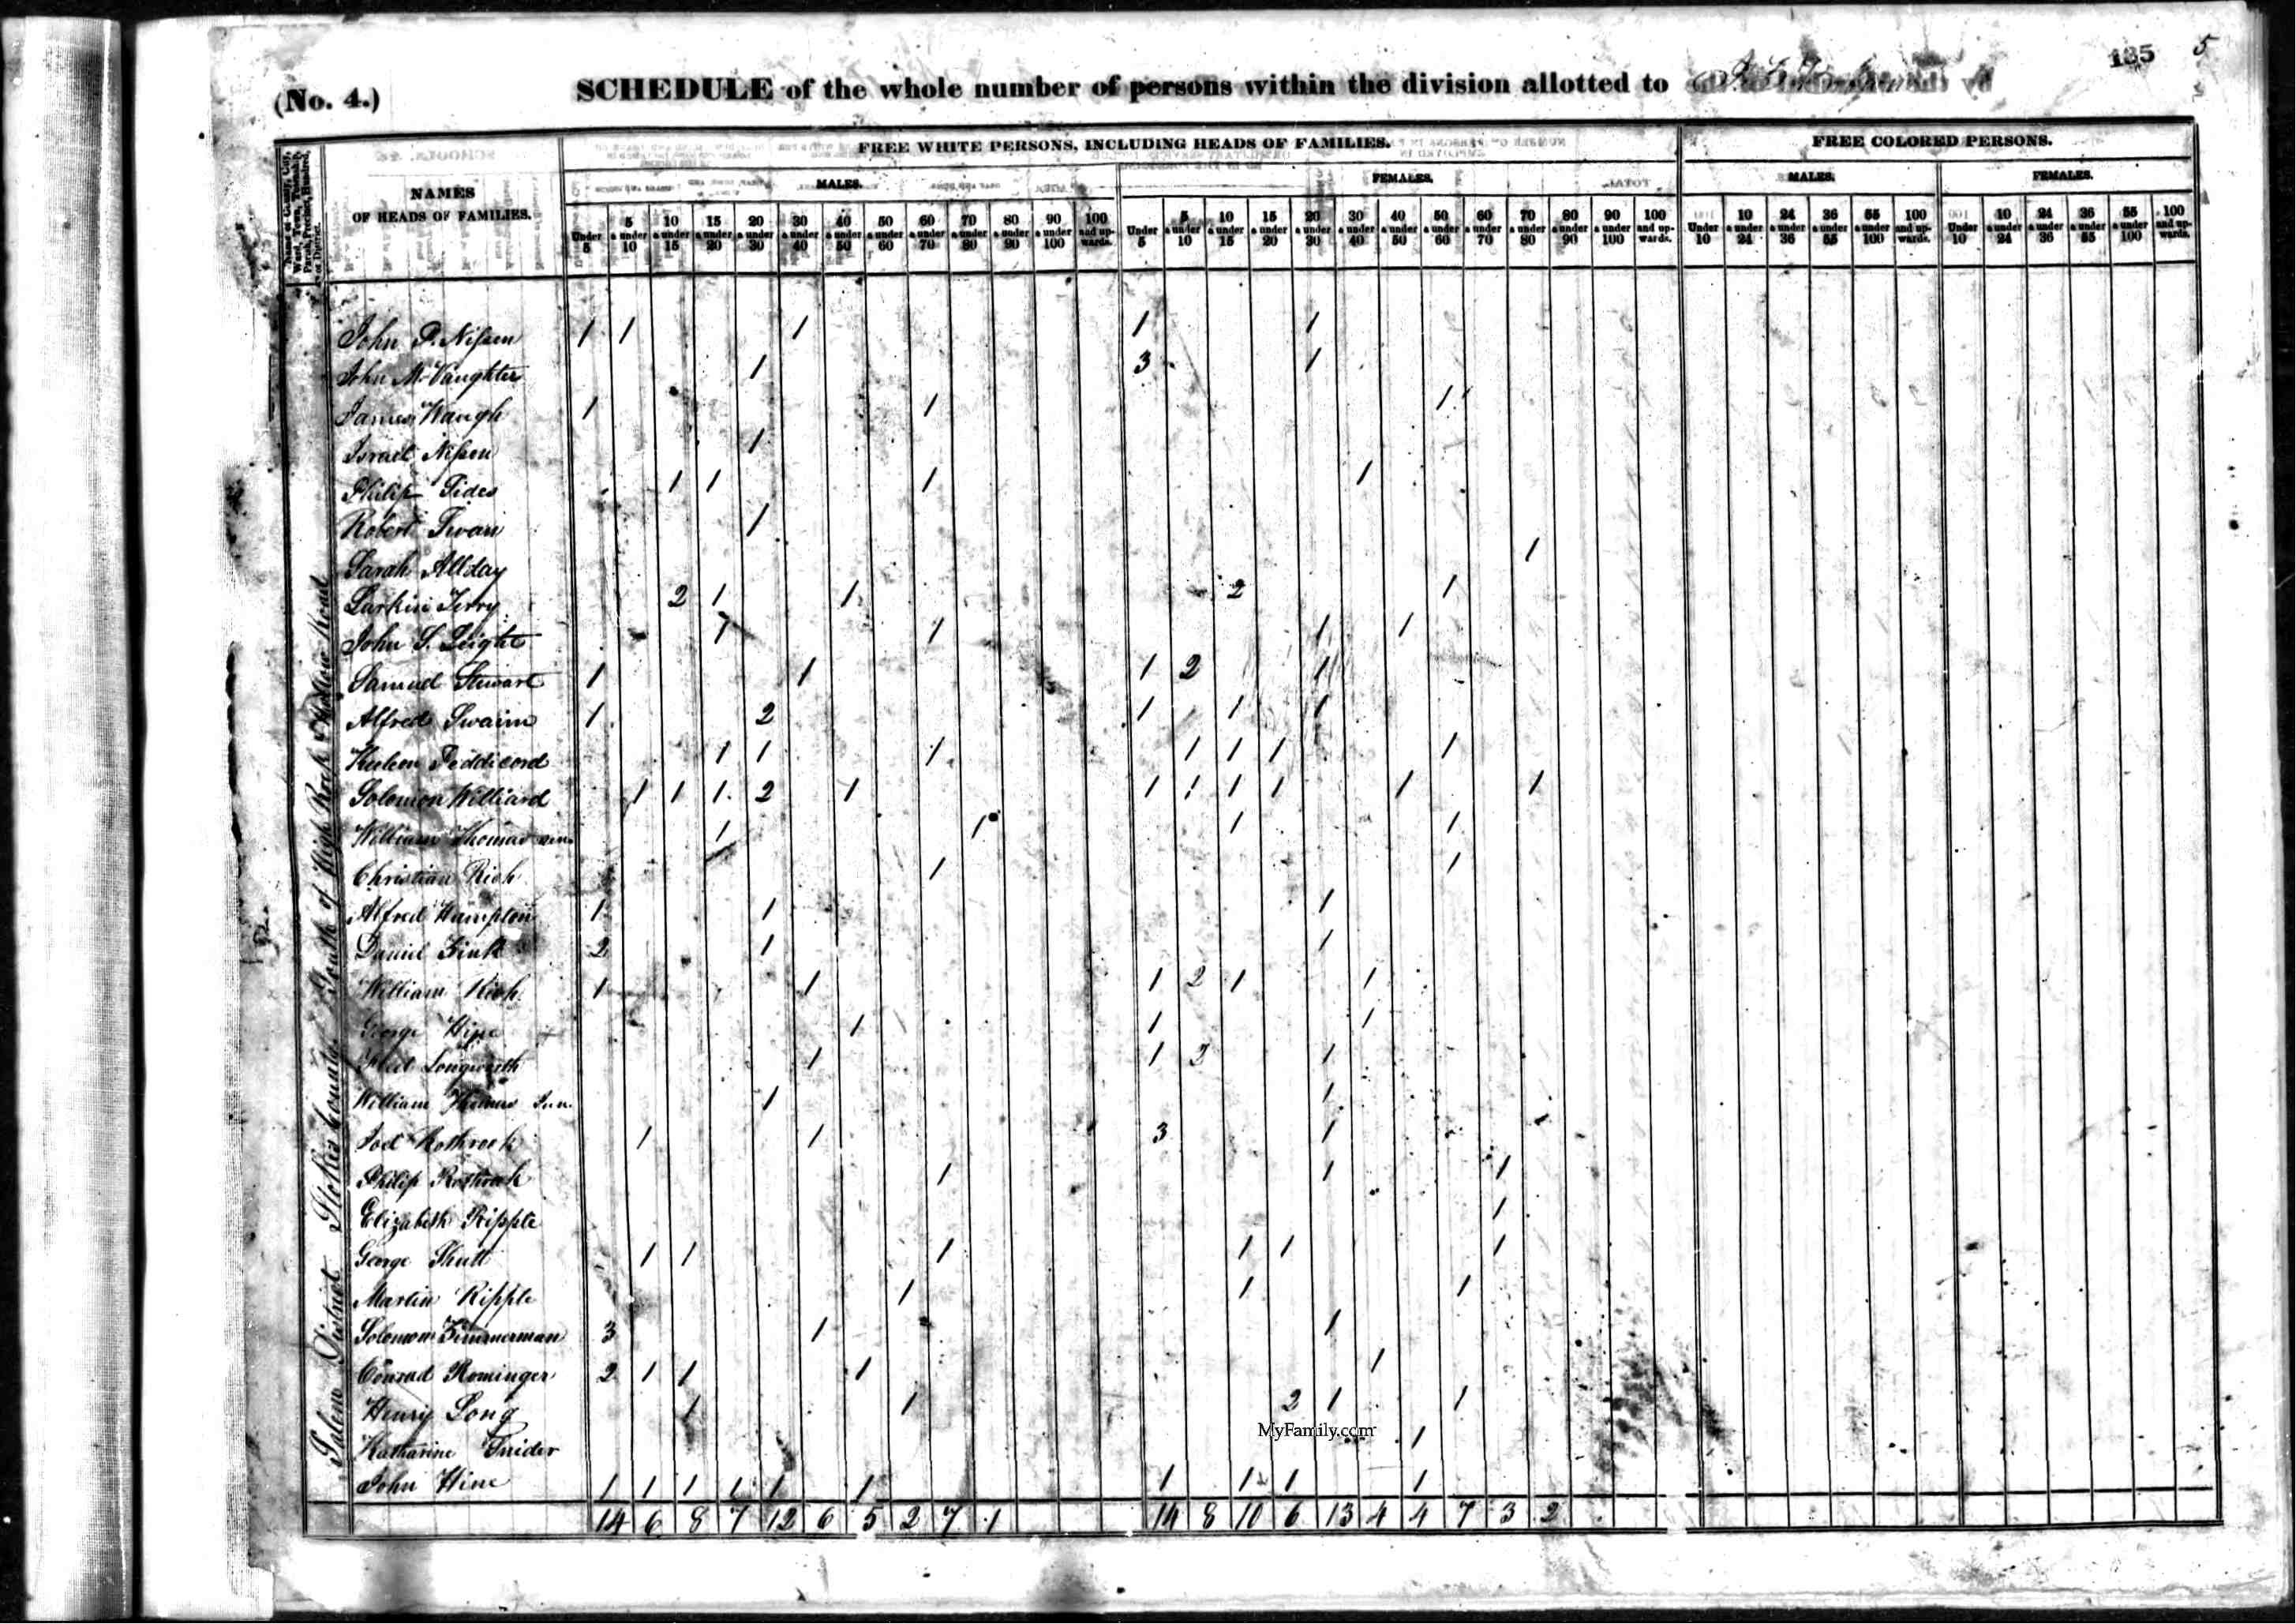 135 5
(No. 4.) SCHEDULE of the whole number of persons within the division allotted to
FREE WHITE PERSONS, INCLUDING HEADS OF FAMILIES. FREE COLORED PERSONS.
NAMES OF HEADS OF FAMILIES.
MALES. FEMALES. MALES. FEMALES.
Under 5 5 & under 10 10 & under 15 15 & under 20 20 & under 30 30 & under 40 40 & under 50 50 & under 60 60 & under 70 70 & under 80 80 & under 90 90 & under 100 100 and upwards.
Under 5 5 & under 10 10 & under 15 15 & under 20 20 & under 30 30 & under 40 40 & under 50 50 & under 60 60 & under 70 70 & under 80 80 & under 90 90 & under 100 100 and upwards.
Under 10 10 & under 24 24 & under 36 36 & under 55 55 & under 100 100 and upwards.
Under 10 10 & under 24 24 & under 36 36 & under 55 55 & under 100 100 and upwards.
Salem District Stokes County South of High Rock Road
John P. Nissen 1 1 1 1 1
John McVaughter 1 3 1
James Waugh 1 1 1
Israel Nissen 1
Philip Tides 1 1 1 1
Robert Swain 1
Sarah Allday 1
Larkin Terry 2 1 1 2 1
John S. Leight 1 1 1 1
Samuel Stewart 1 1 1 2 1
Alfred Swaim 1 2 1 1 1
Peddicord 1 1 1 1 1 1 1
Solomon Williard 1 1 1 2 1 1 1 1 1 1 1
William Thomas sen. 1 1 1 1
Christian Rich 1 1
Alfred Hampton 1 1 1
Daniel 2 1 1
William Rich 1 1 1 2 1 1
George Hine 1 1 1
Longworth 1 1 2 1
William Thomas Jun. 1 1
Joel Rothrock 1 1 3 1
Philip Rothrock 1 1 1
Elizabeth Ripple 1
George Shutt 1 1 1 1 1 1
Martin Ripple 1 1 1
Solomon Zimmerman 3 1 1
Conrad Rominger 2 1 1 1 1
Henry Long 1 1 2 1 1
Katharine Snider 1
John Hine 1 1 1 1 1 1 1 1 1 1
14 6 8 7 12 6 5 2 7 1 14 8 10 6 13 4 4 7 3 2
MyFamily.com